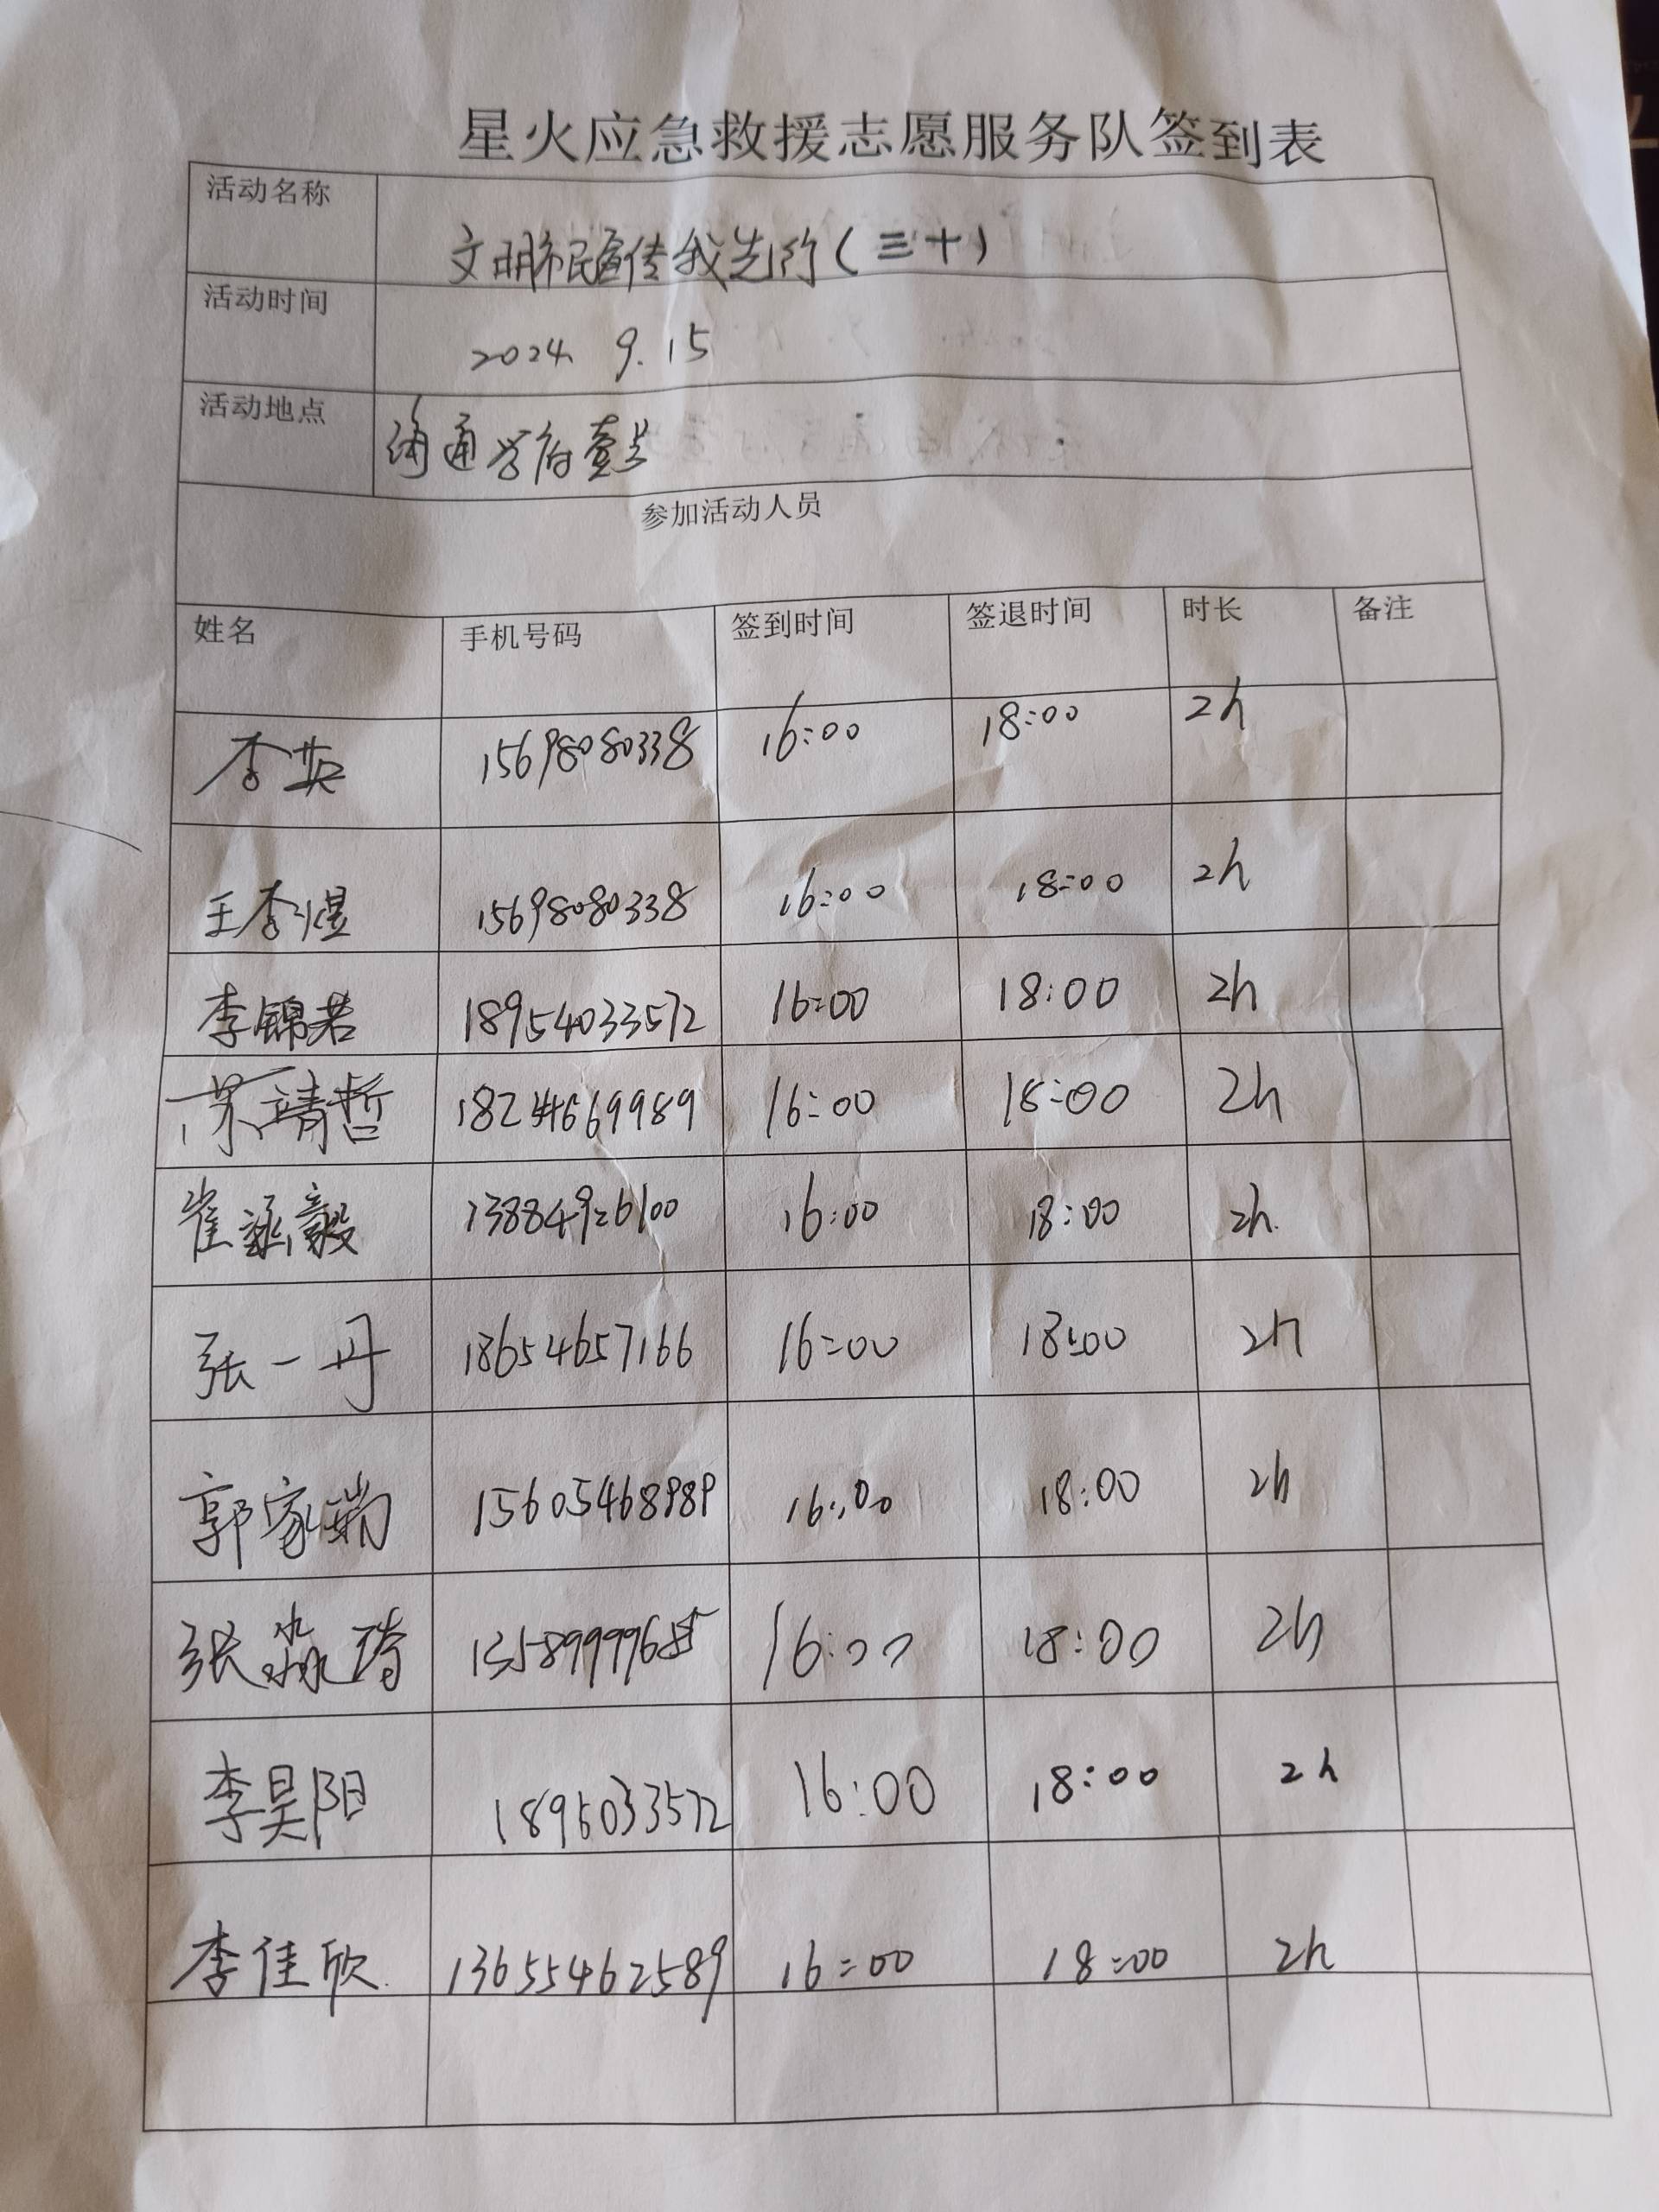 星火应急救援志愿服务队签到表
活动名称 文明市民宣传我先行（三十）
活动时间 2024. 9. 15
活动地点 海通学府壹号
参加活动人员
姓名 手机号码 签到时间 签退时间 时长 备注
李英 15698080338 16:00 18:00 2h
王李煜 15698080338 16:00 18:00 2h
李锦若 18954033572 16:00 18:00 2h
靖哲 18244669989 16:00 18:00 2h
崔毅 13884926100 16:00 18:00 2h
张一丹 18654657166 16:00 18:00 2h
郭家瑞 15605468989 16:00 18:00 2h
张淼琦 16:00 18:00 2h
李昊阳 1895033572 16:00 18:00 2h
李佳欣 13655462589 16:00 18:00 2h